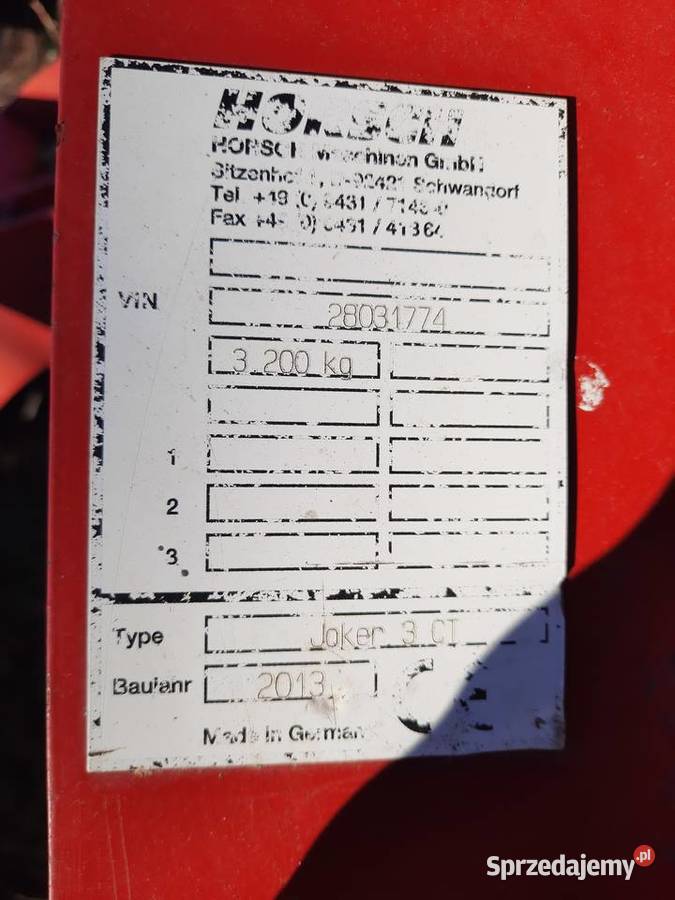 HORSCH
HORSCH Maschinen GmbH
Sitzenhof 1, D-92421 Schwandorf
Tel. +49 (0) 9431 / 7143-0
Fax +49 (0) 9431 / 41364
VIN 28031774
3 200 kg
1
2
3
Type Joker 3 CT
Baujahr 2013 CE
Made in Germany
Sprzedajemy.pl